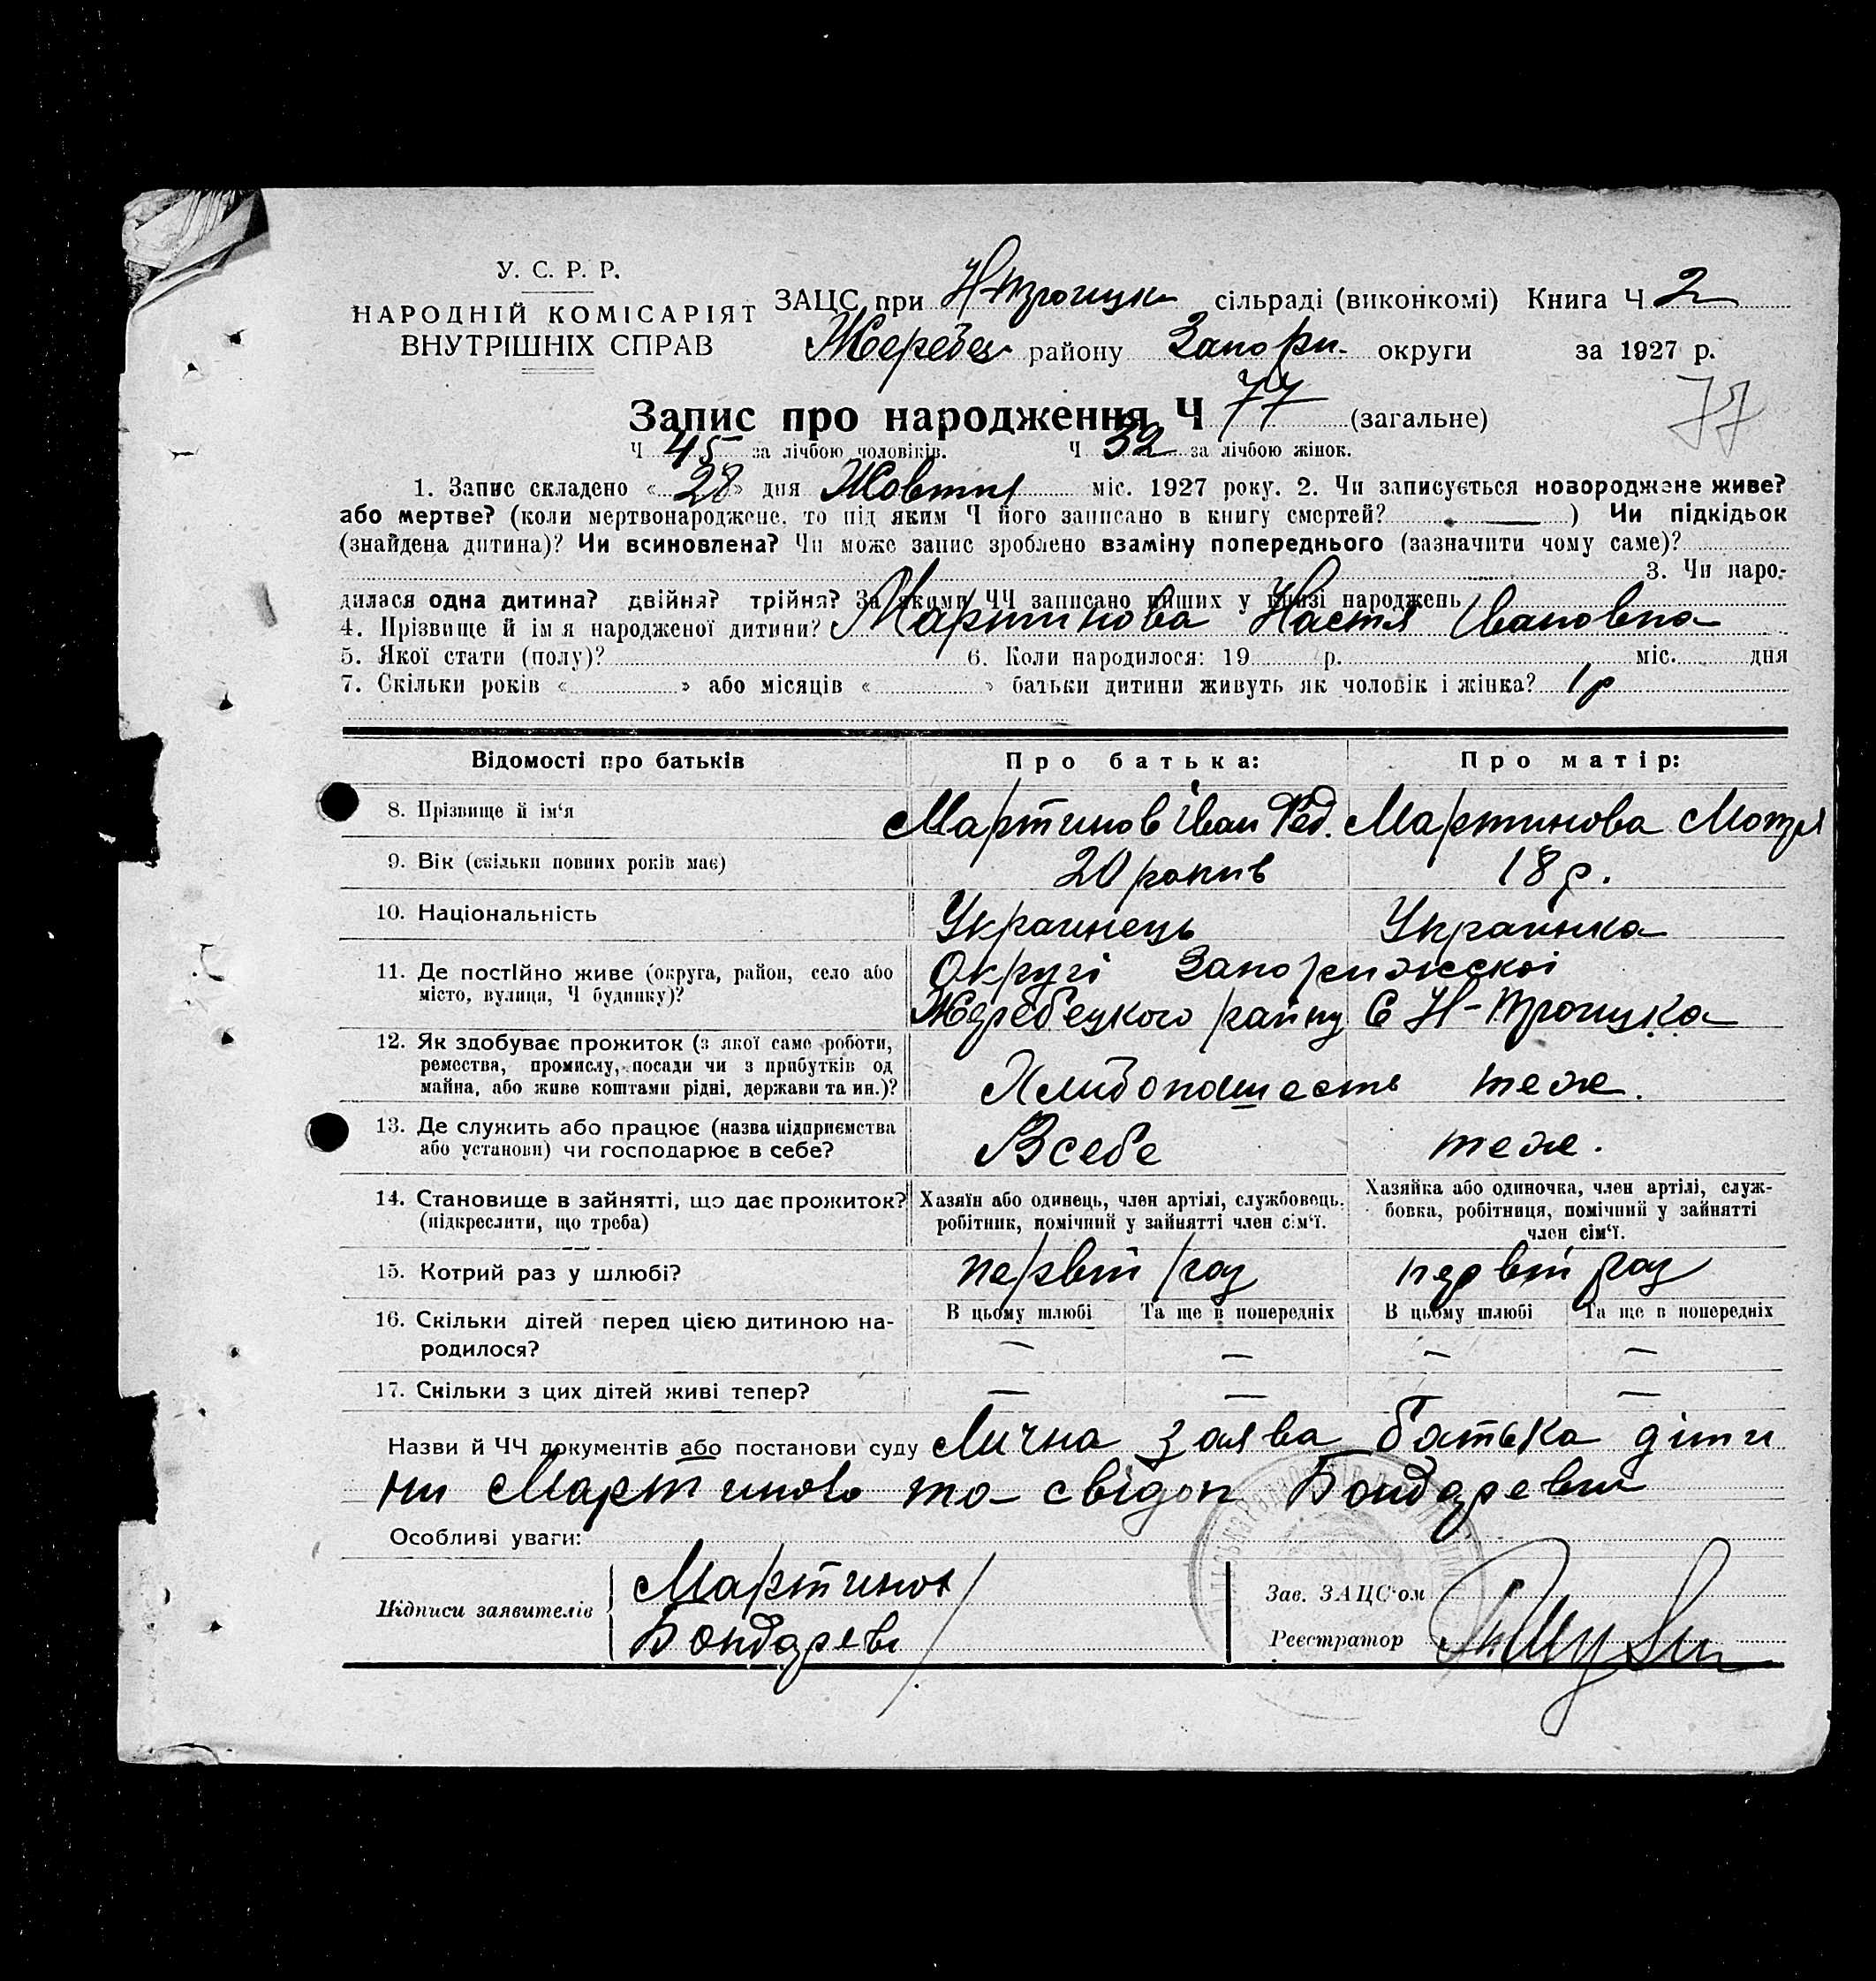 У. С. Р. Р.
НАРОДНІЙ КОМІСАРІЯТ
ВНУТРІШНІХ СПРАВ
ЗАЦС при Н-Троицк сільраді (виконкомі) Книга Ч 2
Жеребец району Запори. округи за 1927 р.
Запис про народження Ч 77 (загальне)
77
Ч 45 за лічбою чоловіків. Ч 32 за лічбою жінок.
1. Запис складено « 28 » дня Жовтня міс. 1927 року. 2. Чи записується новороджене живе?
або мертве? (коли мертвонароджене, то під яким Ч його записано в книгу смертей? — ) Чи підкідьок
(знайдена дитина)? Чи всиновлена? Чи може запис зроблено взаміну попереднього (зазначити чому саме)?
3. Чи наро-
дилася одна дитина? двійня? трійня? За якими ЧЧ записано инших у книзі народжень
4. Прізвище й ім я народженої дитини? Мартинова Настя Ивановна
5. Якої стати (полу)? 6. Коли народилося: 19 р. міс. дня
7. Скільки років « » або місяців « » батьки дитини живуть як чоловік і жінка? 1 р
Відомості про батьків Про батька: Про матір:
8. Прізвище й ім‘я Мартинов Іван Фед. Мартинова Мотря
9. Вік (скільки повних років має) 20 рокив 18 р.
10. Національність Украинець Украинка
11. Де постійно живе (округа, район, село або
місто, вулиця, Ч будинку)?
Округі Запорижскоі
Жеребецкого району С Н-Троицка
12. Як здобуває прожиток (з якої саме роботи,
ремества, промислу, посади чи з прибутків од
майна, або живе коштами рідні, держави та ин.)?
Хлибопашесть теж.
13. Де служить або працює (назва підприємства
або установи) чи господарює в себе?
В себе теж.
14. Становище в зайнятті, що дає прожиток?
(підкреслити, що треба)
Хазяїн або одинець, член артілі, службовець,
робітник, помічний у зайнятті член сім‘ї.
Хазяйка або одиночка, член артілі, служ-
бовка, робітниця, помічний у зайнятті
член сім‘ї.
15. Котрий раз у шлюбі? первій раз первій раз
16. Скільки дітей перед цією дитиною на-
родилося?
В цьому шлюбі Та ще в попередніх В цьому шлюбі Та ще в попередніх
— — — —
17. Скільки з цих дітей живі тепер? — — —
Назви й ЧЧ документів або постанови суду Лична заява батька діти
ни Мартинова та свідок Бондаревий
Особливі уваги:
Підписи заявителів
Мартинов
Бондарев
Зав. ЗАЦС‘ом
Реєстратор